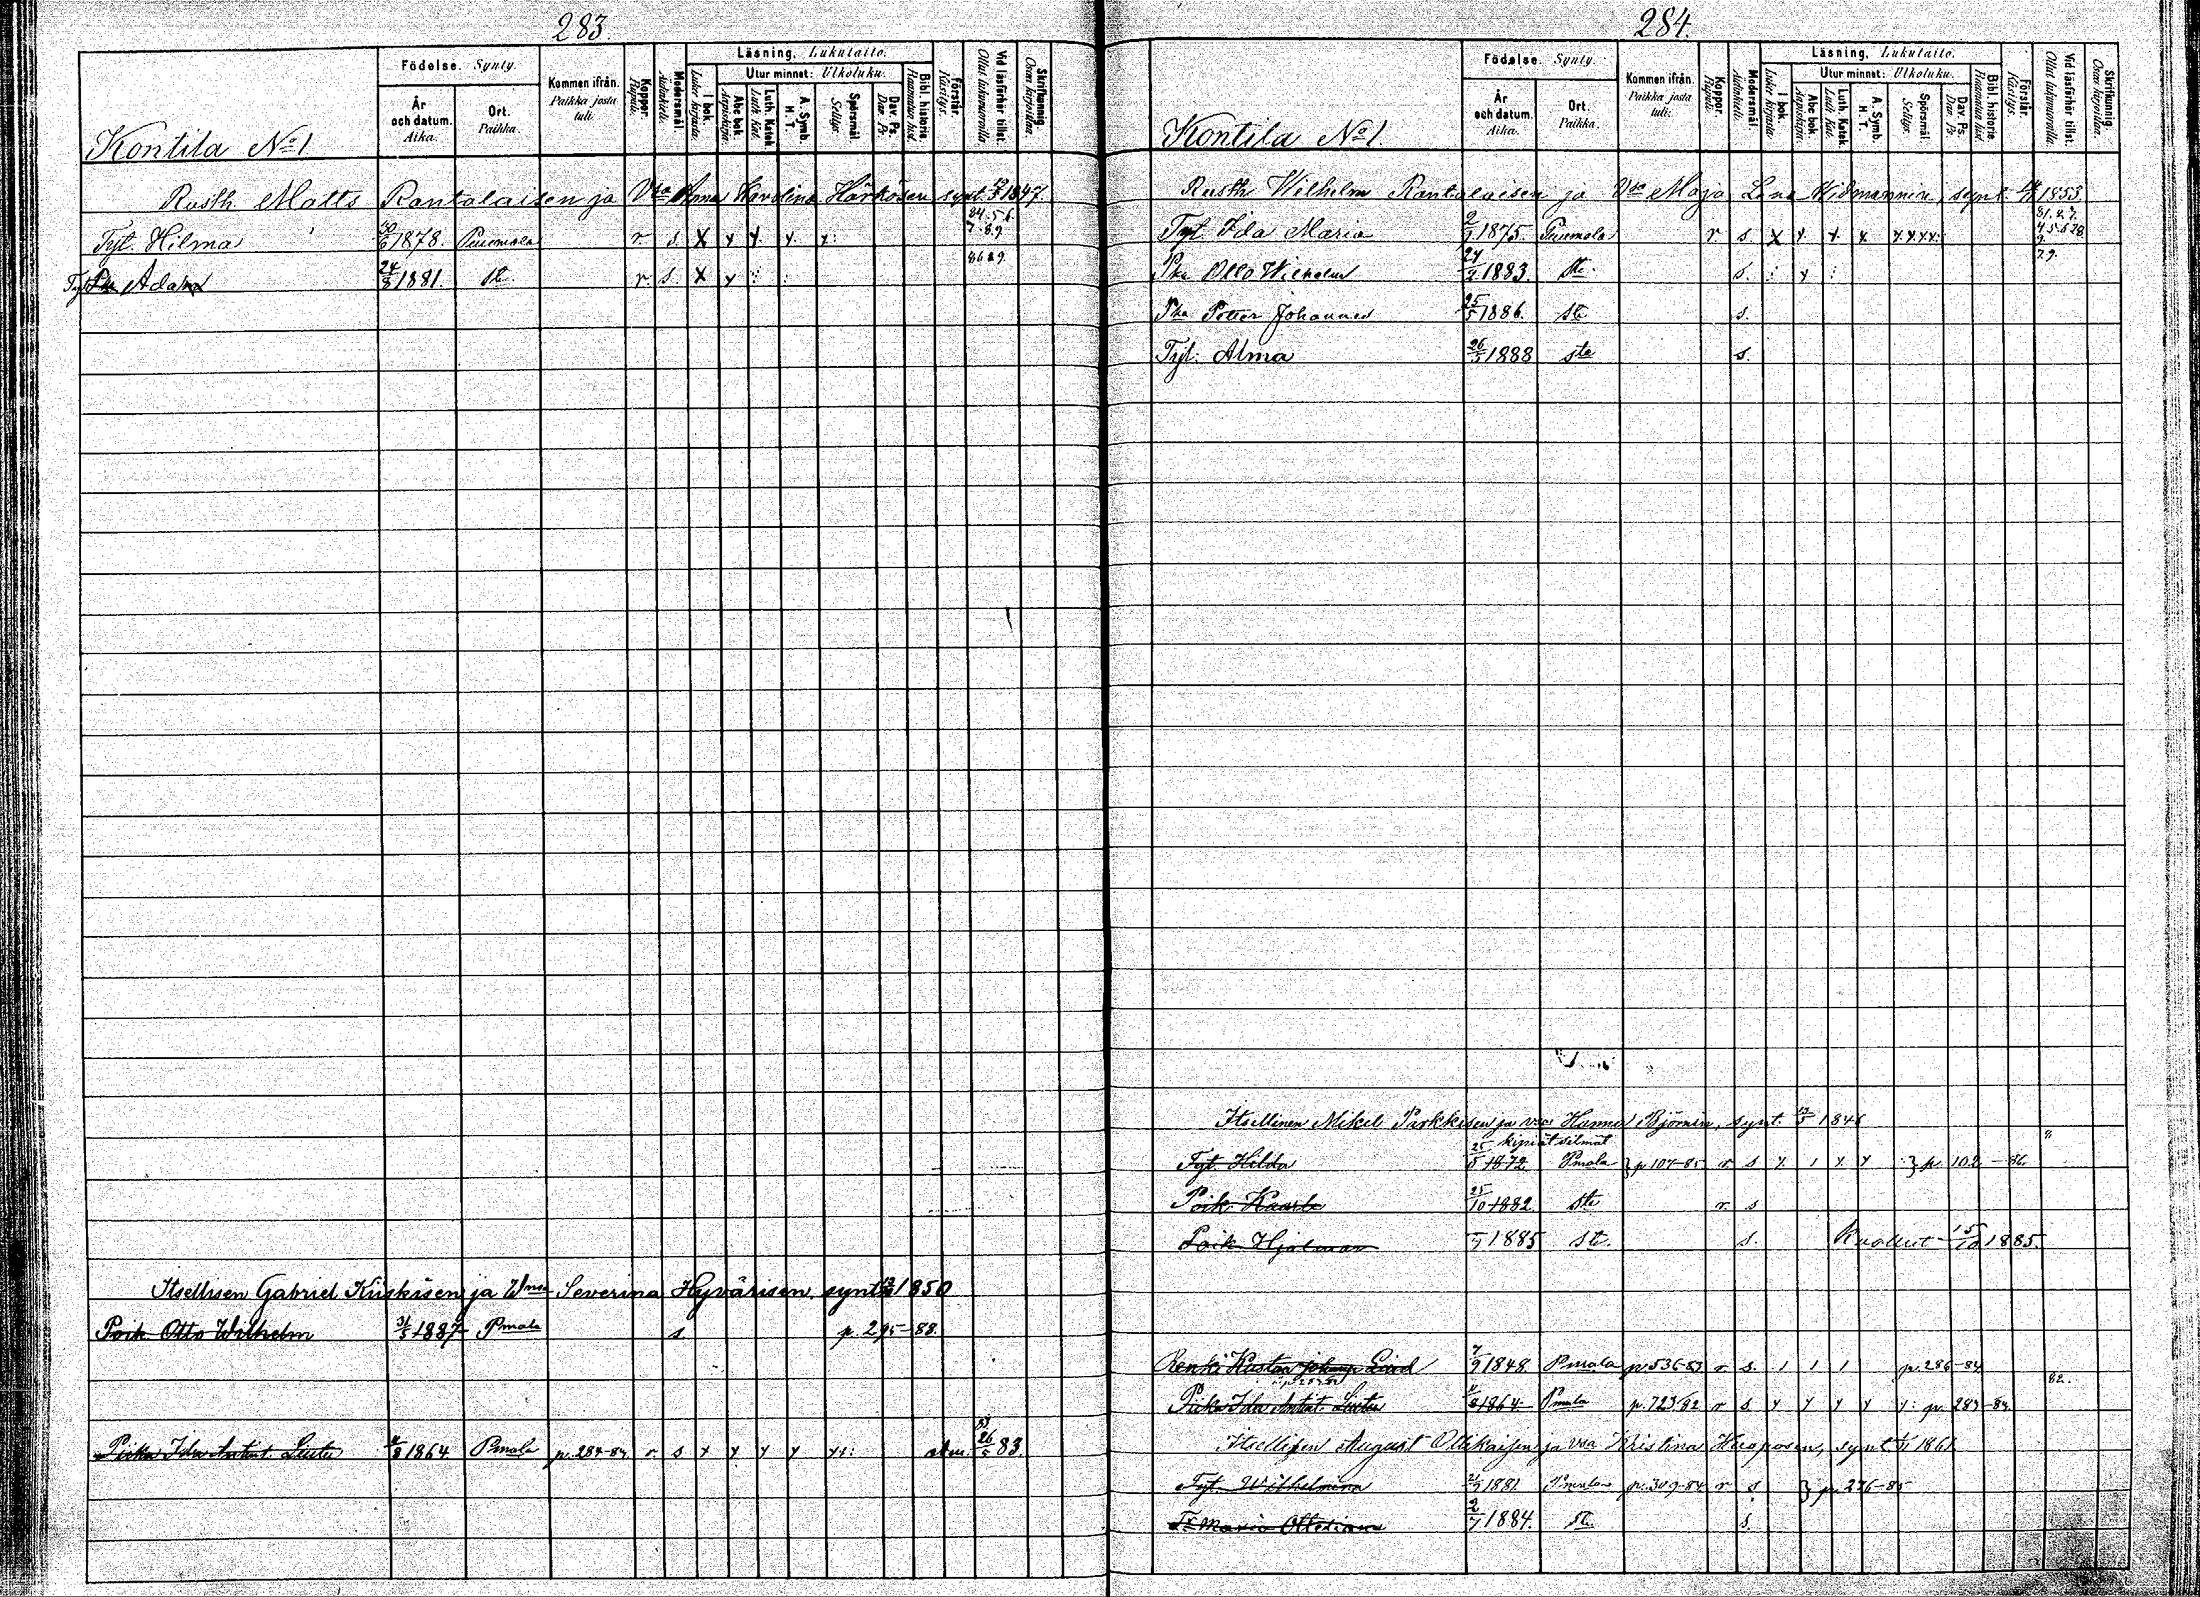 283.
Födelse. Synty.
År och datum. Aika.
Ort. Paikka.
Kommen ifrån. Paikka josta tuli.
Koppor. Rupuli.
Modersmål. Äidinkieli.
Läsning. Lukutaito.
I bok. Lukee kirjasta.
Utur minnet: Ulkoluku.
Abc bok. Aapiskirja.
Luth. Katek. Luth. Kat.
A. Symb. H. T.
Spörsmål. Selitys.
Dav. Ps. Dav. Ps.
Bibl. historie. Raamatun hist.
Förstår. Käsitys.
Vid läsförhör tillst. Ollut lukuvuorolla.
Skrifkunnig. Osaa kirjoittaa.
Kontila No 1
Rusth. Matts Rantalaisen ja Vsa Anna Karolina Härkösen synt. 1847.
Tyt. Hilma 30/6 1878. Puumala r. s. X y y. y. y: 84. 5. 6. 7. 8. 9.
Tyt Ada 24/8 1881. ste r. s. X y : : 8 6 8 9.
Itsellisen Gabriel Kiiskisen ja Vmon Severina Hyvärisen synt. 1850
Poik Otto Wilhelm 31/5 1887 Pmala s. p. 295-88.
Piika Ida Antint. Luutu 4/8 1864. Pmala p. 284-84. r. s y y y y y: 26/5 83.
284.
Födelse. Synty.
År och datum. Aika.
Ort. Paikka.
Kommen ifrån. Paikka josta tuli.
Koppor. Rupuli.
Modersmål. Äidinkieli.
Läsning. Lukutaito.
I bok. Lukee kirjasta.
Utur minnet: Ulkoluku.
Abc bok. Aapiskirja.
Luth. Katek. Luth. Kat.
A. Symb. H. T.
Spörsmål. Selitys.
Dav. Ps. Dav. Ps.
Bibl. historie. Raamatun hist.
Förstår. Käsitys.
Vid läsförhör tillst. Ollut lukuvuorolla.
Skrifkunnig. Osaa kirjoittaa.
Kontila No 1.
Rusth. Wilhelm Rantalaisen ja Vsa Maja Lena Hidmannin, synt. 1853.
Tyt. Ida Maria 2/9 1875. Puumala r s. X y. y. y. y. y. y. y.
Pka Otto Wilhelm 24/2 1883. ste. s. : y :
Pka Petter Johannes 25/5 1886. ste s.
Tyt. Alma 26/3 1888 ste s.
Itsellinen Mikel Parkkisen ja vsa Hanna Björnin, synt. 1846
kipeät silmät
Tyt. Hilda 25/8 1872 Pmala } p 107-85 r s y. 1 y y } p. 102-86.
Poik. Kaarle 25/10 1882 ste r. s
Poik. Hjalmar 1885 ste. s. Kuollut 15/10 1885.
Renki Kustaa Johanp. Lind 7/9 1848 Pmala p. 536-83 r s. 1 1 1 p. 286-84
Piika Ida Antint. Luutu 4/8 1864 Pmala p. 723/82 r s y y y y y: p. 283-84. 82.
Itsellisen August Ollikaisen ja vsa Kristina Huoposen, synt. 1861
Tyt. Wilhelmina 21/9 1881 Pmala p. 309-84 r s } p. 276-85
Tr Maria Ottiliana 2/7 1884. ste s.